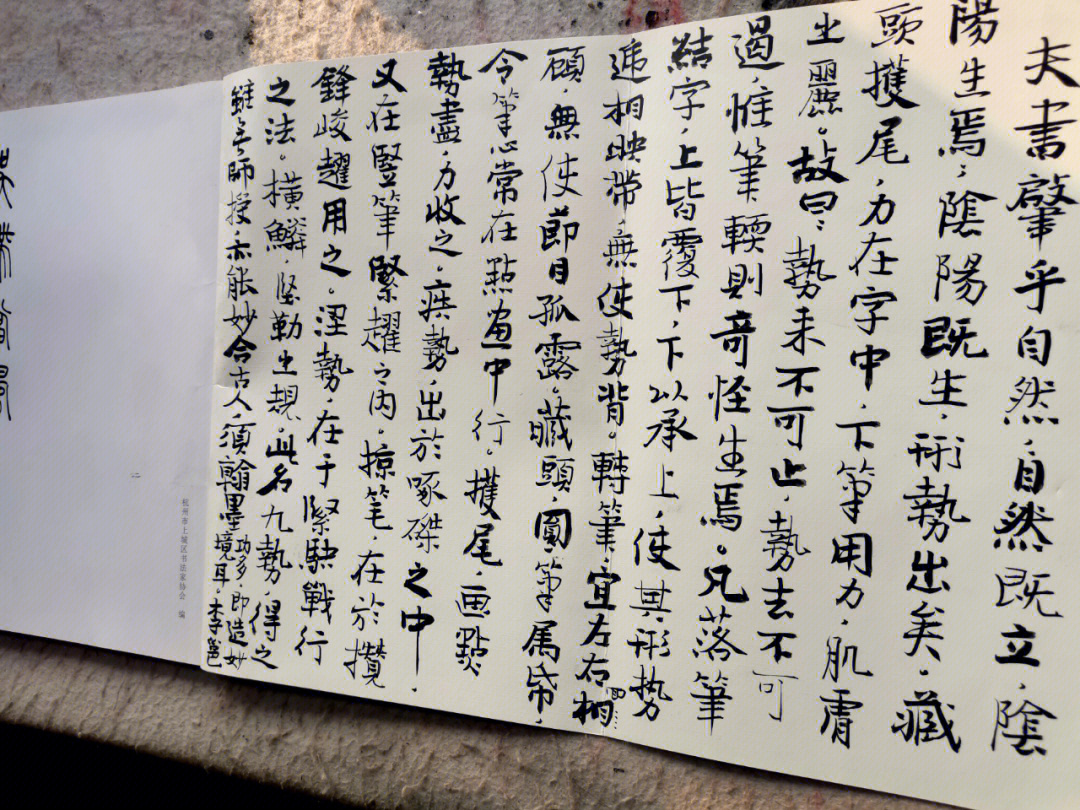 夫書肇乎自然，自然既立，陰
陽生焉；陰陽既生，形勢出矣。藏
頭護尾，力在字中，下筆用力，肌膚
之麗。故曰：勢来不可止，勢去不可
遏，惟筆輭則奇怪生焉。凡落筆
結字，上皆覆下，下以承上，使其形势
遞相映帶，無使勢背。轉筆，宜左右相
顧，無使節目孤露。藏頭，圓筆属帋，
令筆心常在點畫中行。護尾，画點
勢盡，力收之。疾勢，出於啄磔之中，
又在竪筆緊趯之内。掠笔，在於攢
鋒峻趯用之。澀勢，在于緊駃戰行
之法。横鱗，竪勒之規。此名九勢，得之
雖無師授，亦能妙合古人，須翰墨
功多，即造妙
境耳。李邕
杭州市上城区书法家协会 编
二